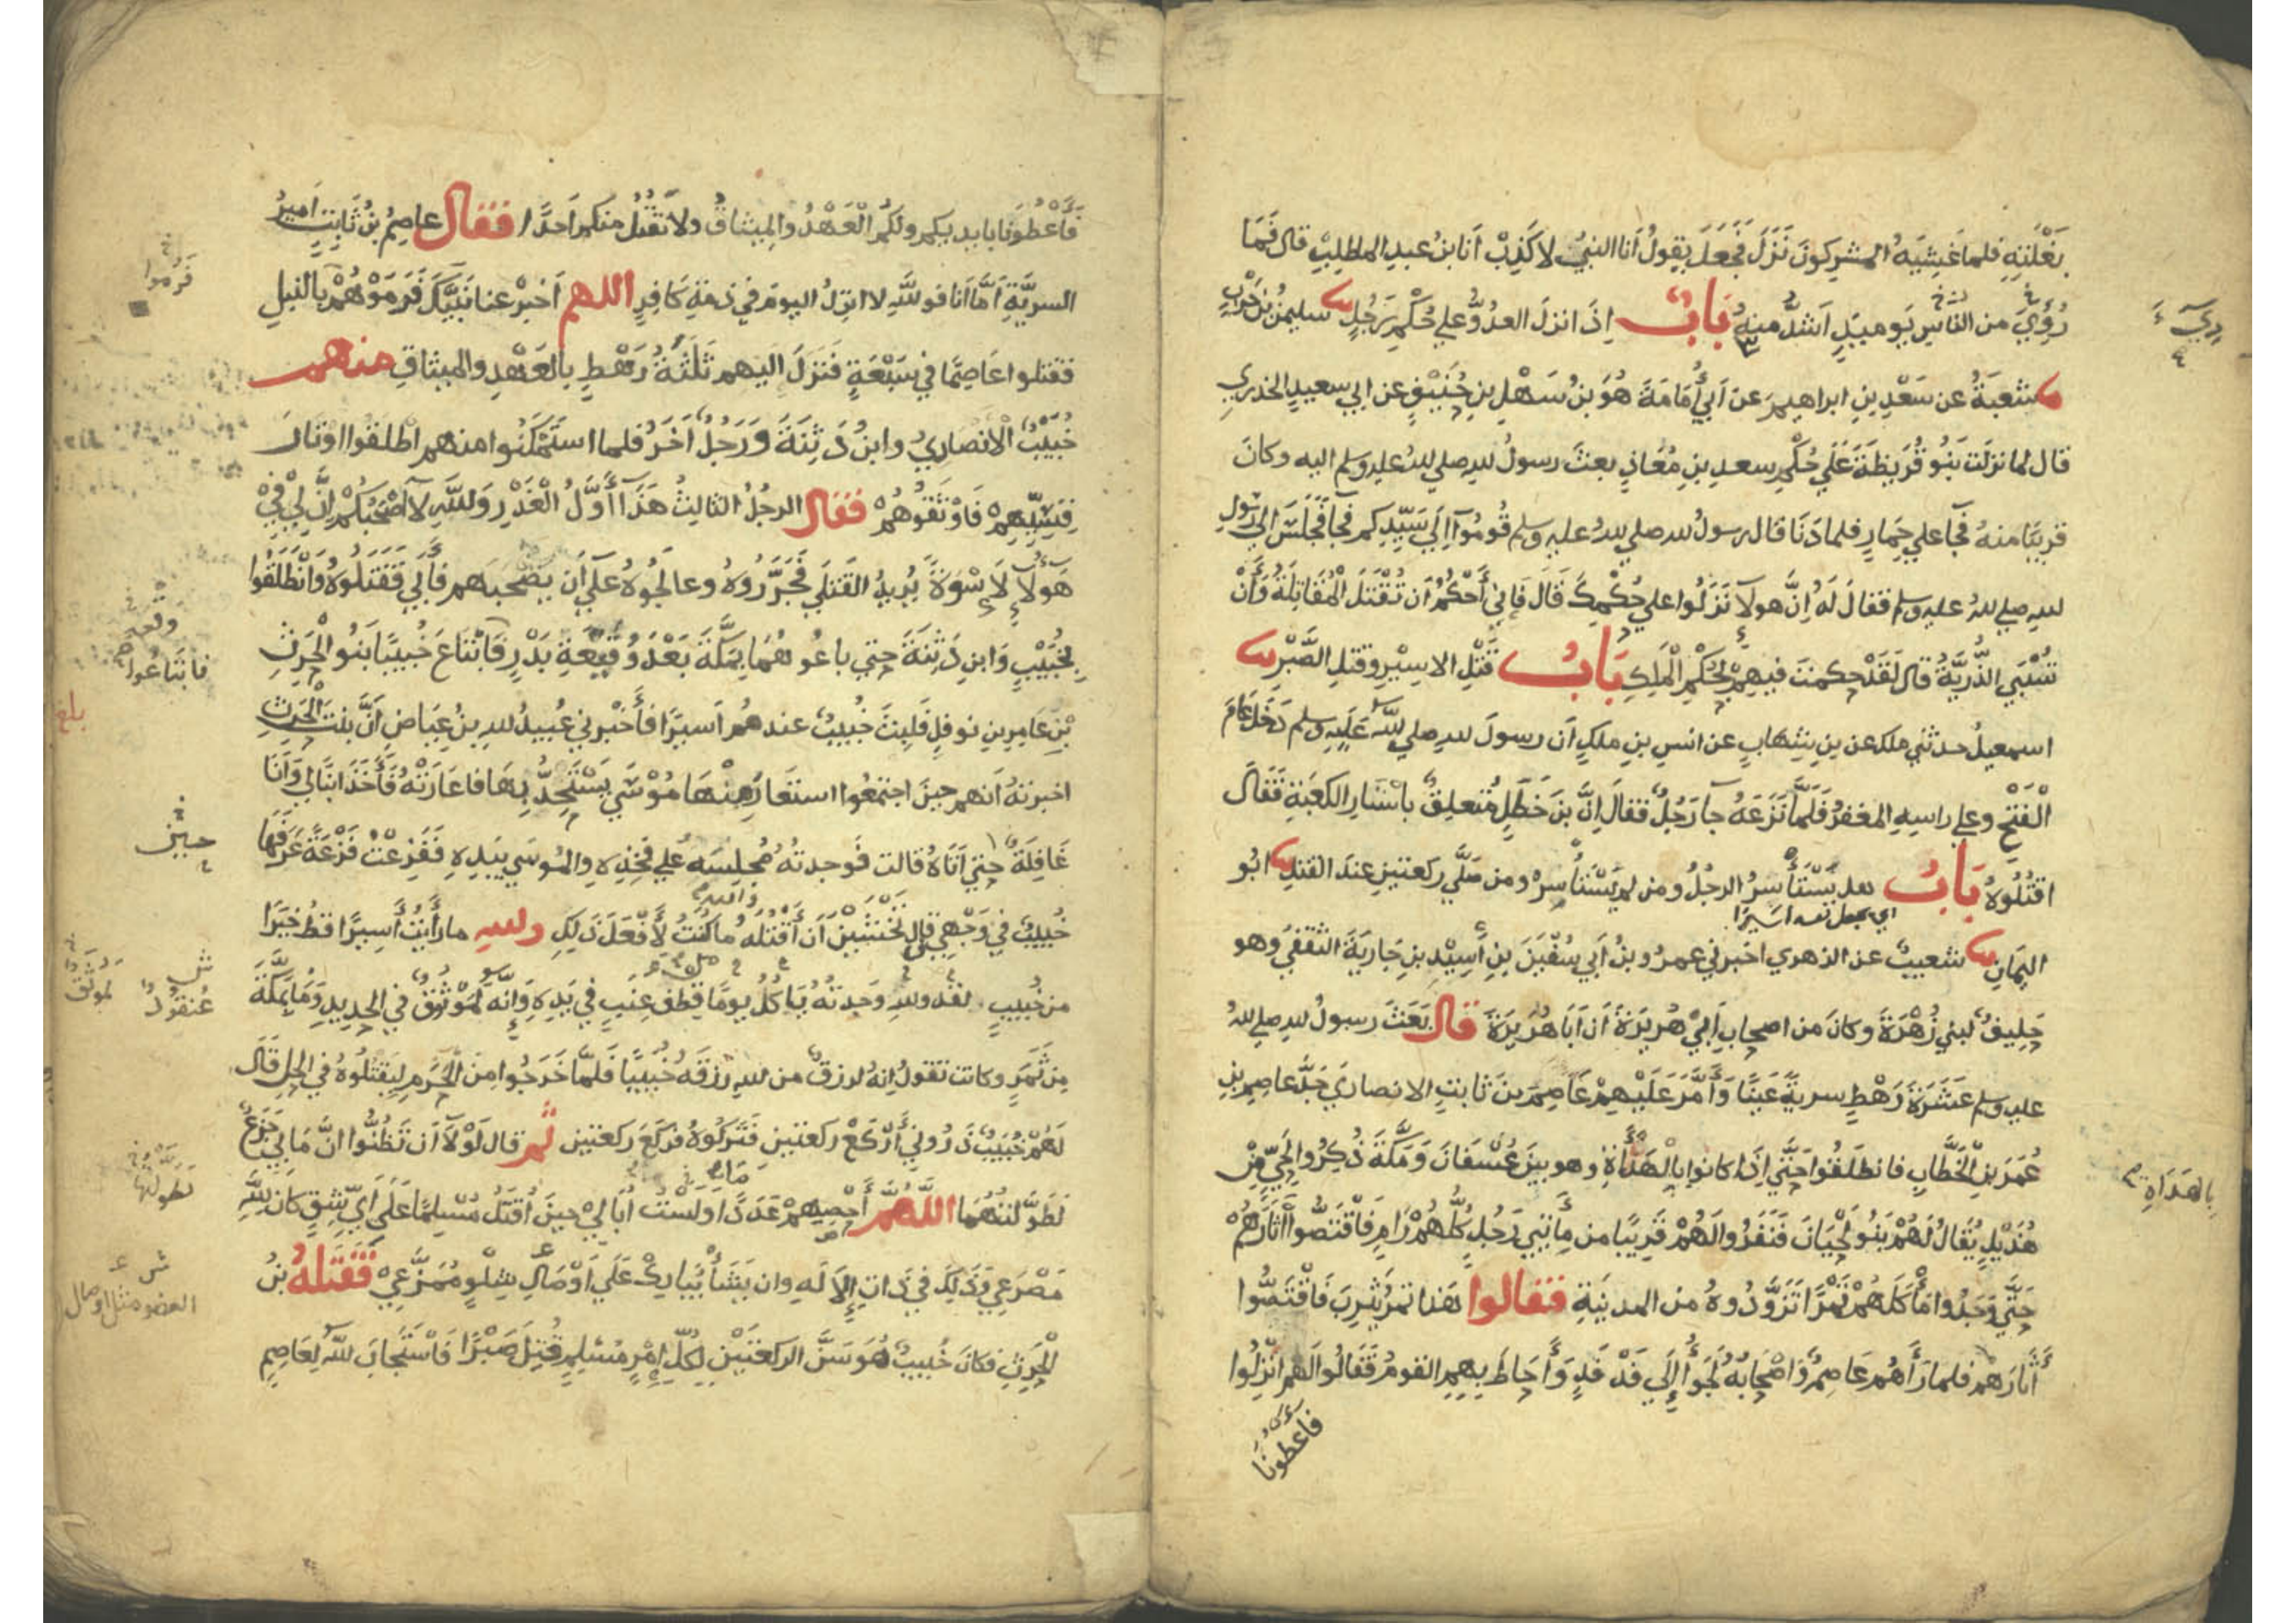 بَغْلَتِهِ فلما غَشِيَهُ المشركونَ نَزَلَ فَجَعَلَ يقولُ أنا النبيُّ لا كَذِبْ أنا ابنُ عبدِ المطلِبْ قال فَمَا
رُؤِيَ من الناسِ يَوميِذٍ اَشدُّ منهُ بَابٌ اِذَا نزلَ العدُوُّ علي حُكْمِ رَجُلٍ سليمنُ بنُ حَرْبٍ
شعبَةُ عن سَعْدِ بنِ ابراهيمَ عن اَبي أُمَامَةَ هُوَ بنُ سَهْلِ بنِ حُنَيْفٍ عن ابي سعيدٍ الخدري
قال لما نزلَت بَنُو قُرَيظَةَ عَلَي حُكْمِ سعدِ بنِ مُعَاذٍ بعثَ رسولُ لله صلي لله عليه وسلم اليه وكانَ
قريبًا منهُ فجا علي حِمَارٍ فلما دَنَا قال رسولُ لله صلي لله عليه وسلم قُومُوآ اِلَي سَيِّدِكم فجآ فَجَلَسَ الي رسولِ
لله صلي لله عليه وسلم فقالَ لَهُ اِنَّ هولآ نَزَلُوا علي حُكْمِكَ قَالَ فَاِني أَحْكُمُ اَن تُقْتَلَ الْمُقَاتِلَةُ وَأَنْ
تُسْبَي الذُّرِيَّةُ قال لَقَدْ حكمتَ فيهِمْ بِحُكْمِ الْمَلِكِ بَابُ قَتْلِ الاسِيْرِ وقتلِ الصَّبْرِ
اسمعيلُ حدثني ملك عن بنِ شِهَابٍ عن انسِ بنِ ملكٍ اَن رسولَ لله صلي لله عَلَيهِ وسلم دَخَلَ عَامَ
الْفَتْحِ وعلي راسِهِ المغفرُ فَلَمَّا نَزَعَهُ جآ رَجُلٌ فقالَ اِنَّ بنَ خَطَلٍ مُتعلِقٌ باسْتَارِ الكعبَةِ فَقَالَ
اقتُلُوهُ بَابٌ هل يَسْتَأْسِرُ الرجلُ ومن لم يَسْتَأْسِرْ ومن صَلَّي ركعتينِ عندَ القتلِ ابُو
اي يجعل نفسه اسَيْرًا
اليَمَانِ شعيبٌ عن الزهري اخبرني عمرُو بنُ أَبي سُفْيَنَ بنِ أَسِيْدِ بنِ جَارِيَةَ الثقفيُ وهو
حَلِيفٌ لبني زُهْرَةَ وكانَ من اصحابِ اَبي هُرَيْرَةَ اَن أَبَا هُرَيرَةَ قال بَعَثَ رسولُ لله صلي لله
عليه وسلم عَشَرَةَ رَهْطٍ سريةً عَينًا وَأَمَّرَ عَلَيْهِمْ عَاصِمَ بنَ ثابتٍ الانصاريَ جَدَّ عاصِمِ بنِ
عُمَرَ بنِ الْخَطَّابِ فانطَلَقُوا حَتَّي اِذَا كانوا بِالْهَدَأَةِ وهو بينَ عُسْفَانَ وَمَكَّةَ ذُكِرُوا لِحَيٍّ مِنْ
هُذَيْلٍ يُقَالُ لَهُمْ بَنُو لِحْيَانَ فَنَفَرُوا لَهُمْ قَرِيبًا من مِأَتَيِ رَجُلٍ كُلُّهُمْ رَامٍ فَاقْتَصُّوا أَثَارَهُمْ
حَتَّي وَجَدُوا مَأْكَلَهُمْ تَمْرًا تَزَوَّدُوهُ من المدينَةِ فقالوا هَذَا تمرُ يَثرِبَ فَاقْتَصُّوا
أَثَارَهُمْ فلما رَأَهُم عَاصِمٌ وَاصْحَابُهُ لَجَؤُا إِلَي فَدْ فَدٍ وَأَحَاطَ بِهِمِ القومُ فَقَالُوا لَهم انْزِلُوا
فاعطونا
بِالهَدَاةِ
فَأَعْطُوْنَا بايديكم ولَكُمُ الْعَهْدُ والمِيثاقُ ولاَ نَقْتُلُ منكم اَحدًا فقال عاصِمُ بنُ ثَابِتٍ اَميرُ
السريَّةِ اَمَّا اَنا فوللَّهِ لا انزِلُ اليومَ في ذمةِ كَافِرٍ اللهم اَخبِرْ عنا نَبِيَّكَ فَرَمَوْهُمْ بِالنبلِ
فقتلوا عَاصِمًا في سَبْعَةٍ فَنَزَلَ اليهم ثَلَثَةُ رَهْطٍ بِالعَهْدِ والميثاقِ منهم
خُبَيْبٌ الْأنصاريُ وابنُ دَثِنَةَ وَرَجُلٌ آخَرُ فلما استَمْكَنُوا منهم اطلَقُوا اوتارَ
قِسِيِّهِمْ فَاَوْثَقُوهُمْ فقال الرجُلُ الثالِثُ هَذَآ أَوَّلُ الْغَدْرِ وَللَّهِ لآ اَصْحَبُكُمْ اِنَّ لِي فِيْ
هَولآءِ لَاِسْوَةً يُرِيدُ القَتلَي فَجَرَّرُوهُ وعالجُوهُ عَلَي أَن يَصْحَبَهم فأَبَي فَقَتَلُوهُ وَانْطَلَقُوا
بِخُبَيْبٍ وَابنِ دَثِنَةَ حتي باعُوهُمَا بِمَكَّةَ بَعْدَ وَقِيعَةِ بَدْرٍ فَابْتَاعَ خُبيبًا بَنُو الْحَرِثِ
بْنِ عَامِرِ بنِ نوفلٍ فَلَبِثَ خُبيبٌ عندهُم اَسيرًا فأَخْبرني عُبيدُ للهِ بنُ عِيَاضٍ اَنَّ بنتَ الْحَرِثِ
اخبرتهُ اَنهم حِينَ اجتمَعُوا استعَارَ مِنْهَا مُوْسَي يَسْتَحِدُّ بِهَا فاعَارَتْهُ فَأَخَذَ ابنًا لي وَأَنَا
غَافِلَةٌ حِتي اَتَاهُ قالت فوجدتهُ مُجلِسَه عَلي فخِذِهِ والمُوسَي بِيَدِهِ فَفَزِعْتُ فَزْعَةً عَرَفَهَا
خُبيبٌ في وَجْهِي قال تَخْشَيْنَ أَن أَقْتُلَهُ ما كُنتُ لأَفْعَلَ ذَلِكِ وللهِ ما رأَيْتُ أَسِيرًا قَطُّ خَيْرًا
من خُبيبٍ لقد وللهِ وَجَدتهُ يَاكلُ يومًا قِطفِ عِنَبٍ في يَدِهِ وَاِنه لَمُوْثَقٌ في الحديدِ وَمَا بِمَكَّةَ
مِن ثَمَرٍ وكانت تَقولُ اِنهُ لرزقٌ من للهِ رزقَهُ خُبَيبًا فَلمَّا خَرَجُوا مِنَ الْحَرَمِ لِيَقتُلُوهُ في الحِلِ قَالَ
لَهُمْ خُبَيبٌ ذَرُوني أَرْكَعْ ركعتينِ فَتَرَكُوهُ فركَعَ ركعتين ثُم قال لَوْلآ اَن تَظُنُّوا اَنَّ مَا بي جَزَعٌ
لَطَوَّلتُهُمَا اللَّهُمَّ أَحْصِهِمْ عَدَدًا وَلَسْتُ أُبَالِيْ حِينَ أُقْتَلُ مُسْلِمًا عَلَي أَيِّ شِقٍ كَانَ لِلَّهِ
مَصْرَعِي وَذَلِكَ في ذَاتِ الإِلَهِ وان يَشَأْ يُبَارِكْ عَلَي اَوْصَالِ شِلْوٍ مُمَزَّعِيْ فَقَتَلَهُ بنُ
الْحَرِثِ فكانَ خُبيبٌ هُوَ سَنَّ الركعَتَيْنِ لِكُلِّ امْرِءٍ مُسْلِمٍ قُتِلَ صَبْرًا فَاسْتَجَابَ للهُ لِعَاصِمِ
فَرَموا
وقعة
فابتاعوا
بلغ
حينَ
عُنقُودٌ
لموثق
لطولتها
العضو مثل اوصال